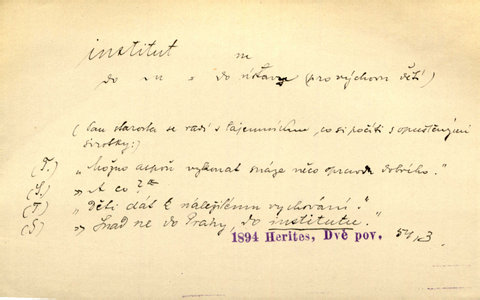 institut m
do -u = do ústavu (pro výchovu dětí)
(Pan starosta se radí s tajemníkem, co si počíti s opuštěnými
sirotky:)
(T.) „Možno aspoň vykonat snáze něco opravdu dobrého."
(S.) „A co?"
(T) „Děti dát k náležitému vychování."
(S) „Snad ne do Prahy, do institutu."
1894 Herites, Dvě pov.